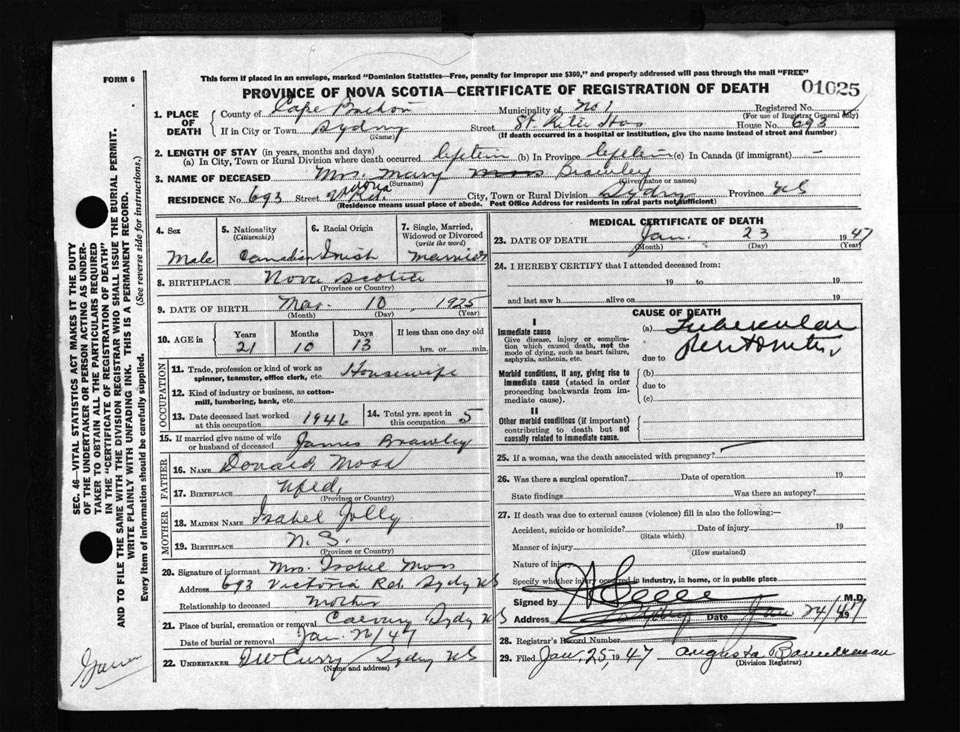 FORM 6
This form if placed in an envelope, marked "Dominion Statistics—Free, penalty for improper use $300," and properly addressed will pass through the mail "FREE"
PROVINCE OF NOVA SCOTIA—CERTIFICATE OF REGISTRATION OF DEATH 01025
1. PLACE OF DEATH County of Cape Breton Municipality of No 1 Registered No.
(For use of Registrar General only)
If in City or Town Sydney Street St Rita Hos House No. 693
(Name) (If death occurred in a hospital or institution, give the name instead of street and number)
2. LENGTH OF STAY (in years, months and days)
(a) In City, Town or Rural Division where death occurred lifetime (b) In Province lifetime (c) In Canada (if immigrant) —
3. NAME OF DECEASED Mrs. Mary Moss Brawley
(Surname) (Given name or names)
RESIDENCE No. 693 Street Victoria Rd. City, Town or Rural Division Sydney Province NS
(Residence means usual place of abode. Post Office Address for residents in rural parts not sufficient)
4. Sex Male
5. Nationality (Citizenship) Canadian
6. Racial Origin Irish
7. Single, Married, Widowed or Divorced (write the word) Married
8. BIRTHPLACE Nova Scotia
(Province or Country)
9. DATE OF BIRTH Mar. 10 1925
(Month) (Day) (Year)
10. AGE in Years Months Days If less than one day old
21 10 13 hrs. or min.
OCCUPATION
11. Trade, profession or kind of work as spinner, teamster, office clerk, etc. Housewife
12. Kind of industry or business, as cotton-mill, lumbering, bank, etc.
13. Date deceased last worked at this occupation 1946
14. Total yrs. spent in this occupation 5
15. If married give name of wife or husband of deceased James Brawley
FATHER
16. NAME Donald Moss
17. BIRTHPLACE Nfld.
(Province or Country)
MOTHER
18. MAIDEN NAME Isabel Jolly
19. BIRTHPLACE N. S.
(Province or Country)
20. Signature of informant Mrs. Isabel Moss
Address 693 Victoria Rd. Sydy NS
Relationship to deceased Mother
21. Place of burial, cremation or removal Calvary Sydy NS
Date of burial or removal Jan.
22. UNDERTAKER Curry Sydney NS
(Name and address)
MEDICAL CERTIFICATE OF DEATH
23. DATE OF DEATH Jan. 23 1947
(Month) (Day) (Year)
24. I HEREBY CERTIFY that I attended deceased from:
19 to 19
and last saw h alive on 19
CAUSE OF DEATH
I
Immediate cause (a) Tubercular
Give disease, injury or complication which caused death, not the mode of dying, such as heart failure, asphyxia, asthenia, etc. due to Peritonitis
Morbid conditions, if any, giving rise to immediate cause (stated in order proceeding backwards from immediate cause). (b)
due to
(c)
II
Other morbid conditions (if important) contributing to death but not causally related to immediate cause.
25. If a woman, was the death associated with pregnancy?
26. Was there a surgical operation? Date of operation 19
State findings Was there an autopsy?
27. If death was due to external causes (violence) fill in also the following:—
Accident, suicide or homicide? Date of injury 19
(State which)
Manner of injury
(How sustained)
Nature of injury
Specify whether injury occurred in industry, in home, or in public place
Signed by M.D.
Address Sydney Date Jan 24/47 19
28. Registrar's Record Number
29. Filed Jan 25 1947 Augusta
(Division Registrar)
SEC. 46—VITAL STATISTICS ACT MAKES IT THE DUTY
OF THE UNDERTAKER OR PERSON ACTING AS UNDER-
TAKER TO OBTAIN ALL THE PARTICULARS REQUIRED
IN THE "CERTIFICATE OF REGISTRATION OF DEATH"
AND TO FILE THE SAME WITH THE DIVISION REGISTRAR WHO SHALL ISSUE THE BURIAL PERMIT.
WRITE PLAINLY WITH UNFADING INK. THIS IS A PERMANENT RECORD.
Every item of information should be carefully supplied. (See reverse side for instructions.)